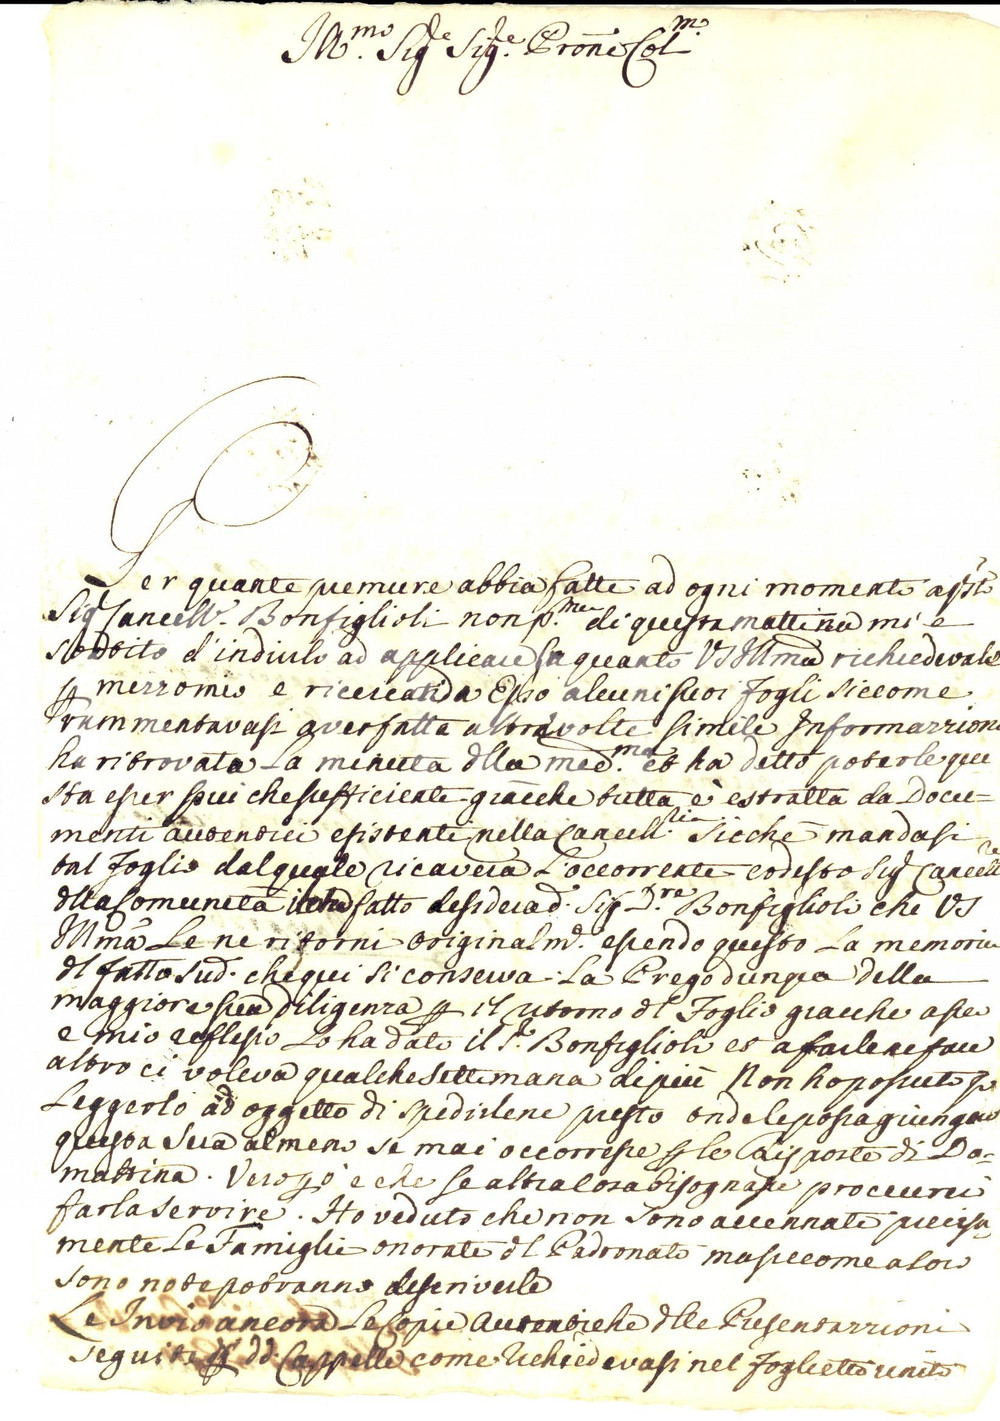 Ill.mo Sig.e Sig.e Prone Col.mo
Per quante premure abbia fatte ad ogni momento a q.sto
Sig. Cancell.e Bonfiglioli non p.ma di questa mattina mi è
sortito d'indurlo ad applicare su quanto VS Illma richiedevale
p mezzo mio e ricercando Esso alcuni suoi fogli siccome
rammentavasi aver fatta altra volta simile Informazzione
ha ritrovata la minuta dlla med.ma et ha detto poterle que
sta esser più che sufficiente giacche tutta è estratta da Docu-
menti autentici esistenti nella Cancell.ria Sicchè mandasi
tal foglio dal quale ricaverà l'occorrente codesto Sig. Cancell.re
dlla Comunità fatto desidera d. Sig. D.re Bonfiglioli che VS
Illma Le ne ritorni originalm. essendo questo la memoria
dl fatto sud. che qui si conserva. La Prego dunque della
maggiore sua diligenza p il ritorno dl Foglio giacche a pe
e mio reflesso lo ha dato il S. Bonfiglioli et a farlene fare
altro ci voleva qualche settimana di più Non ho possuto
Leggerlo ad oggetto di spedirlene presto onde le possa giungere
questa sera almeno se mai occorresse p le Risposte di Do-
mattina. Verò è che se altra cosa bisognasse procurerò
farla servire. Ho veduto che non sono accennate precisa-
mente Le Famiglie onorate dl Padronato ma siccome a loro
sono note potranno descriverle
Le Invio ancora Le Copie Autentiche dlle Presentazzioni
seguite p dd. Cappelle come richiedevasi nel foglietto unito